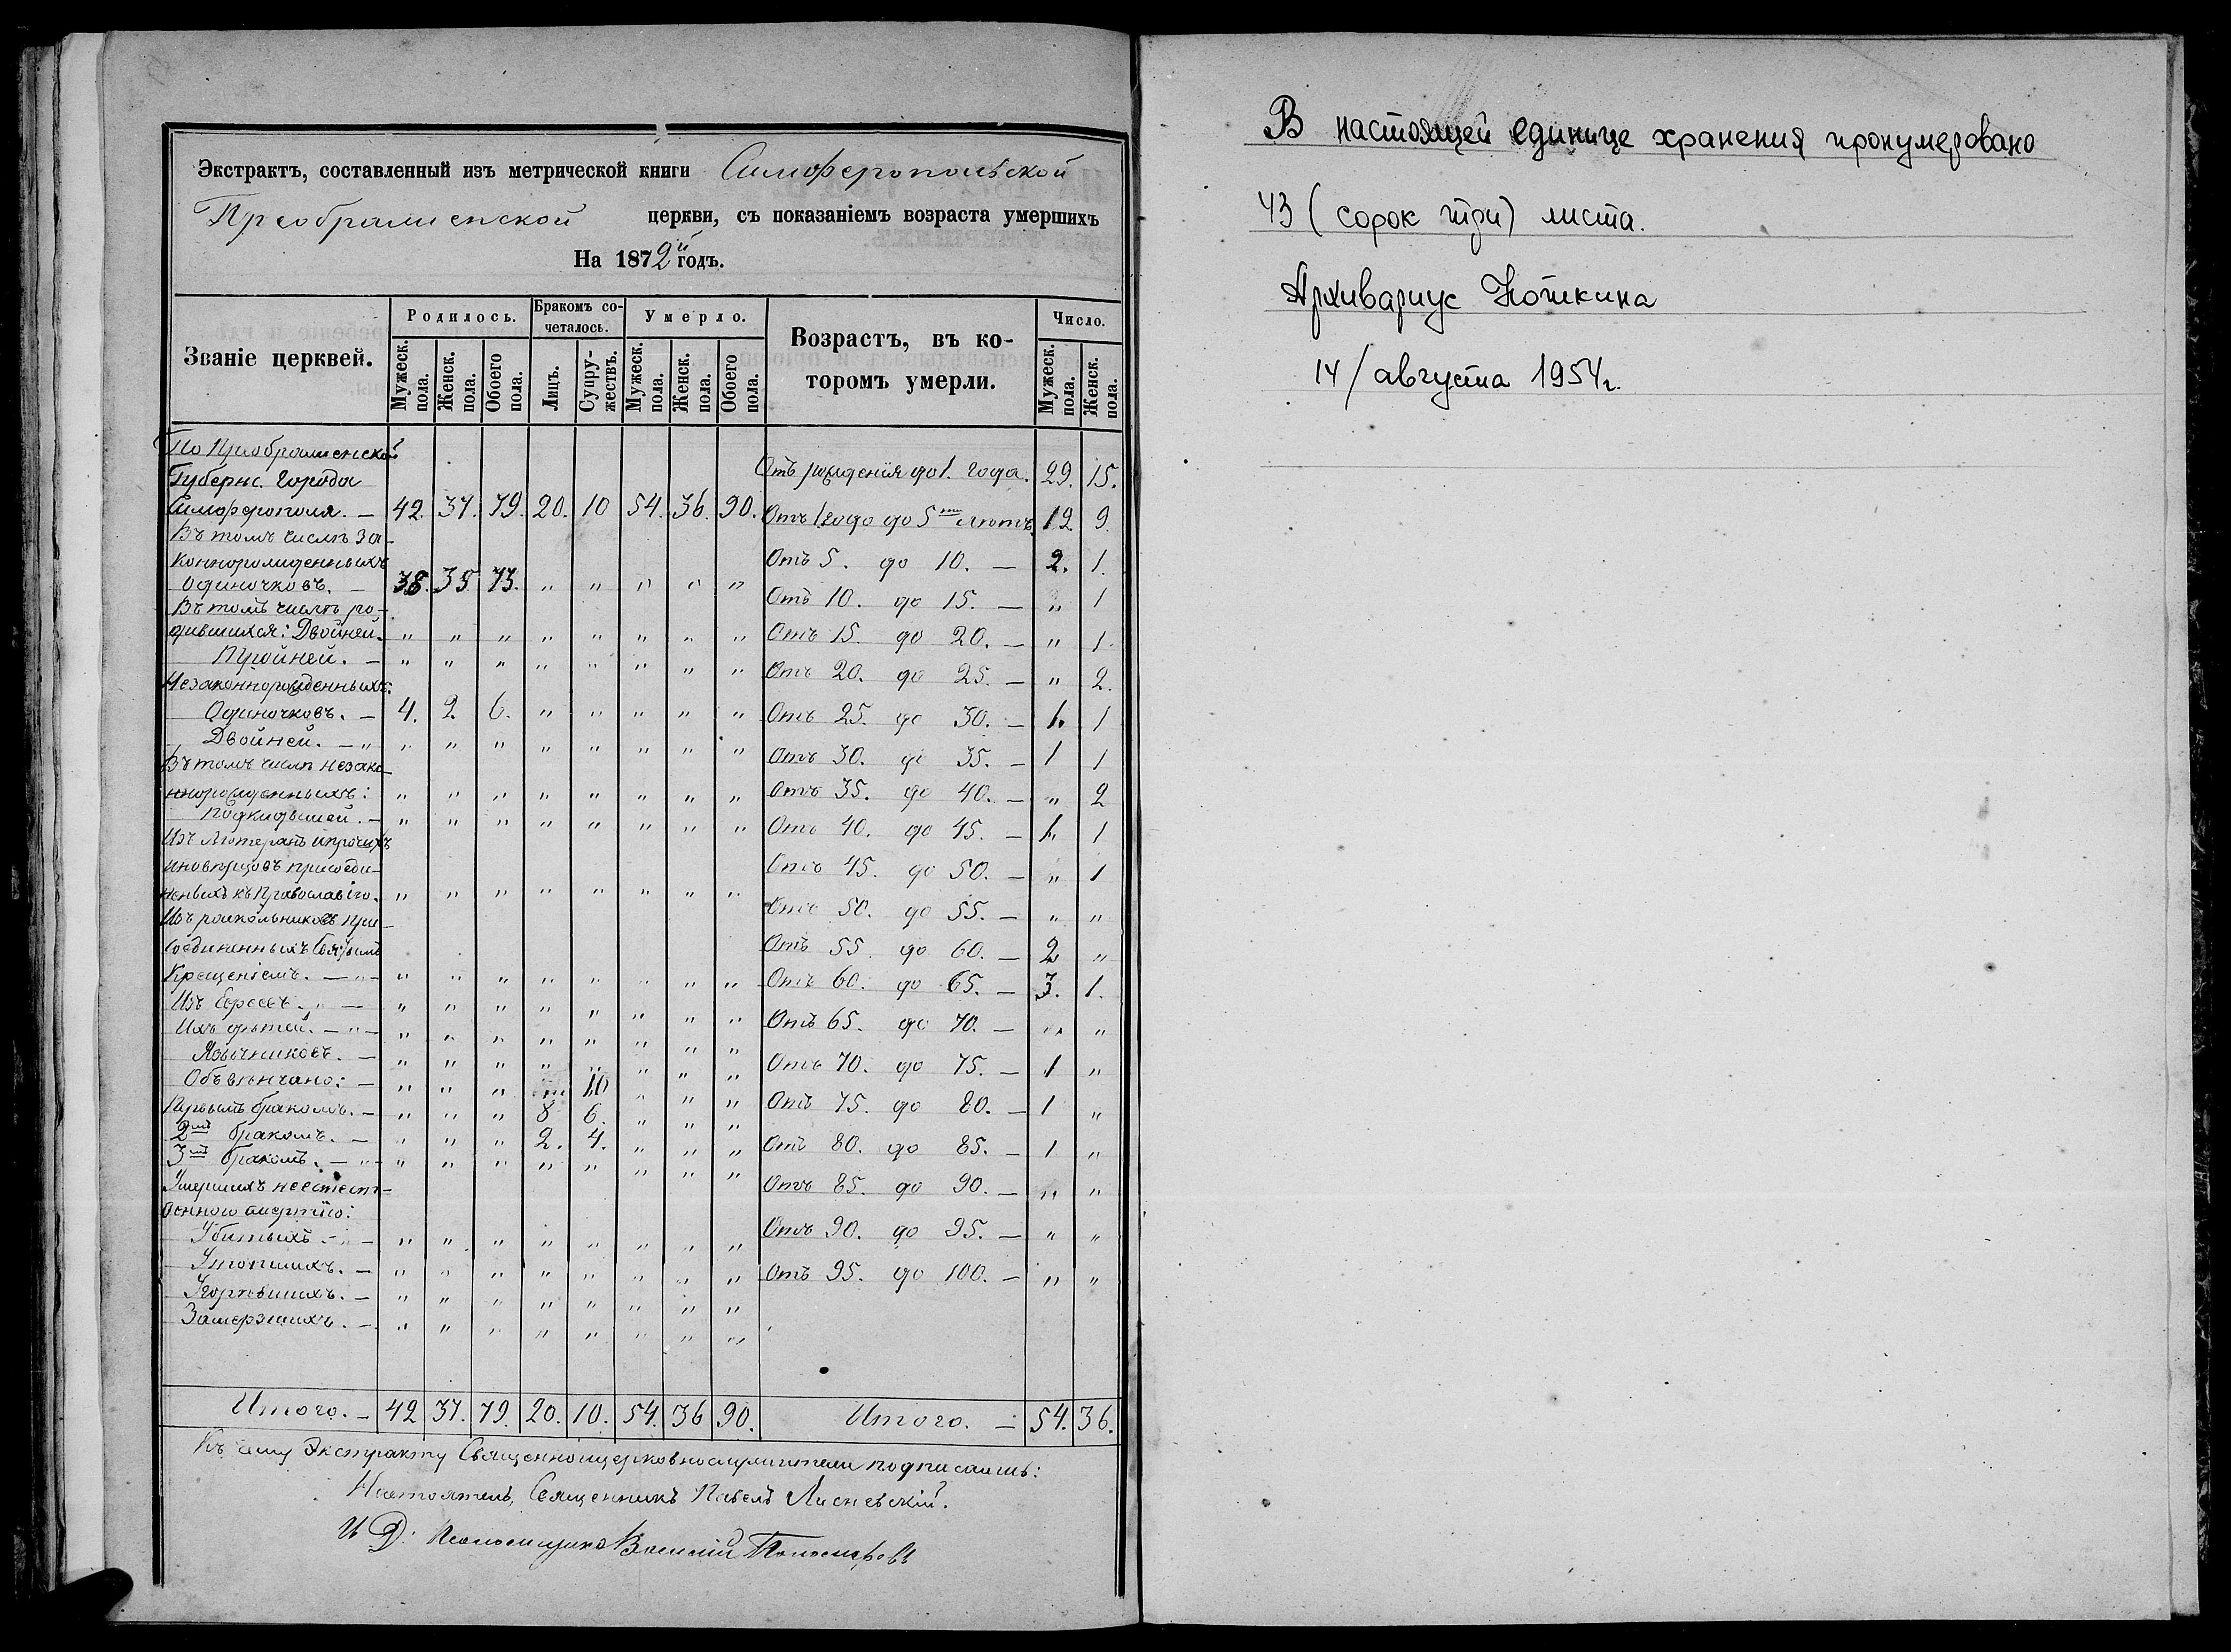 Экстрактъ, составленный изъ метрической книги Симферопольской
Преображенской церкви, съ показаніемъ возраста умершихъ
На 1872й годъ.
Званіе церквей. Родилось. Бракомъ сочеталось. Умерло. Возрастъ, въ которомъ умерли. Число.
Мужеск. пола. Женск. пола. Обоего пола. Лицъ. Супружествъ. Мужеск. пола. Женск. пола. Обоего пола. Мужеск. пола. Женск. пола.
По Преображенской
Губернс. Города
Симферополя. — 42. 37. 79. 20. 10 54. 36. 90.
Въ томъ числѣ За-
коннорожденныхъ
Одиночковъ. — 38. 35 73. " " " " "
Въ томъ числѣ ро-
дившихся: Двойней. " " " " " " " "
Тройней. — " " " " " " " "
Незаконнорожденныхъ:
Одиночковъ. — 4. 2. 6. " " " " "
Двойней. — " " " " " " " " "
Въ томъ числѣ незако-
ннорожденныхъ: " " " " " " " "
Подкидышей. — " " " " " " " "
Изъ Лютеранъ и прочихъ
иновѣрцовъ присоеди-
неныхъ къ Православію. " " " " " " " "
Изъ раскольниковъ при-
соединенныхъ Святымъ
Крещеніемъ. — " — " " " " " " " "
Изъ Евреевъ. " — " " " " " " " "
Ихъ дѣтей. — " — " " " " " " " "
Язычниковъ. — " " " " " " " "
Обвѣнчано: — " " " " 10 " " "
Первымъ бракомъ. — " " " 8 6. " " "
2мъ бракомъ. — " " " 2. 4. " " "
3мъ бракомъ. — " — " " " " " " " "
Умершихъ неестест-
венною смертію:
Убитыхъ — " — " " " " " " " "
Утопшихъ. — " " " " " " " "
Угорѣвшихъ. — " " " " " " " "
Замерзшихъ. — " " " " " " " "
Итого. — 42 37. 79. 20. 10. 54. 36 90.
Отъ рожденія до 1. года. 29. 15.
Отъ 1 года до 5ти лѣтъ 12. 9.
Отъ 5. до 10. — 2. 1.
Отъ 10. до 15. — " 1
Отъ 15. до 20. — " 1.
Отъ 20. до 25. — " 2.
Отъ 25. до 30. — 1. 1
Отъ 30. до 35. — 1 1
Отъ 35. до 40. — " 2
Отъ 40. до 45. — 1. 1
Отъ 45. до 50. — " 1
Отъ 50. до 55. — " "
Отъ 55 до 60. — 2 "
Отъ 60. до 65. — 3. 1.
Отъ 65. до 70. — " "
Отъ 70. до 75. — 1 "
Отъ 75. до 80. — 1 "
Отъ 80. до 85. — 1 "
Отъ 85. до 90. — " "
Отъ 90. до 95. — " "
Отъ 95. до 100. — " "
Итого. — 54. 36.
Къ сему Экстракту Священноицерковнослужители подписались:
Настоятель, Священникъ Павелъ Лисневскій.
И Д. Псаломщика Василий Пономаревъ
В настоящей единице хранения пронумеровано
43 (сорок три) листа.
Архивариус Котькина
14/августа 1954г.